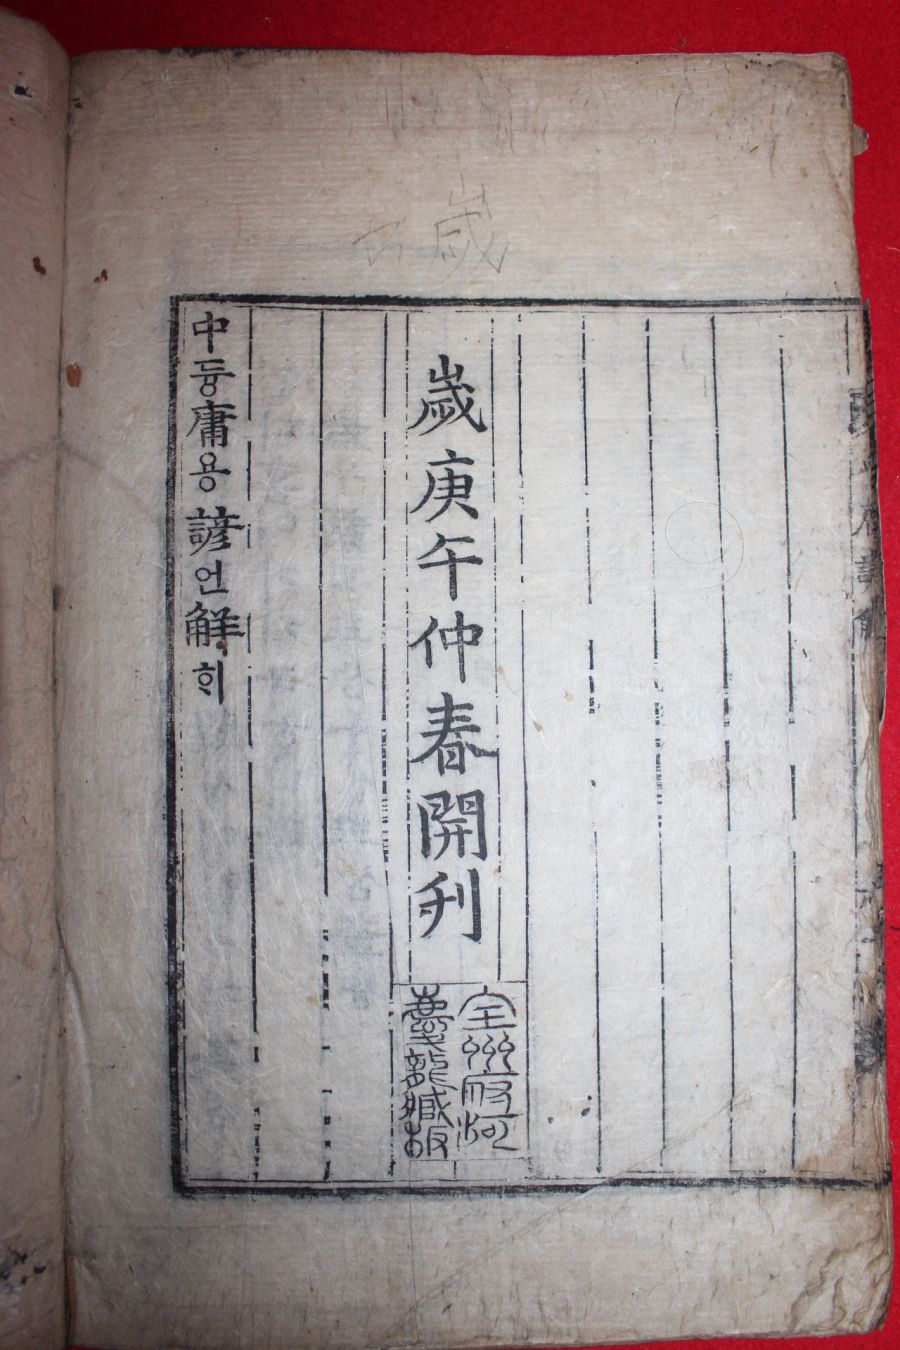 歲
歲庚午仲春開刊
全州府河
慶龍藏板
中듕庸용諺언解ᄒᆡ